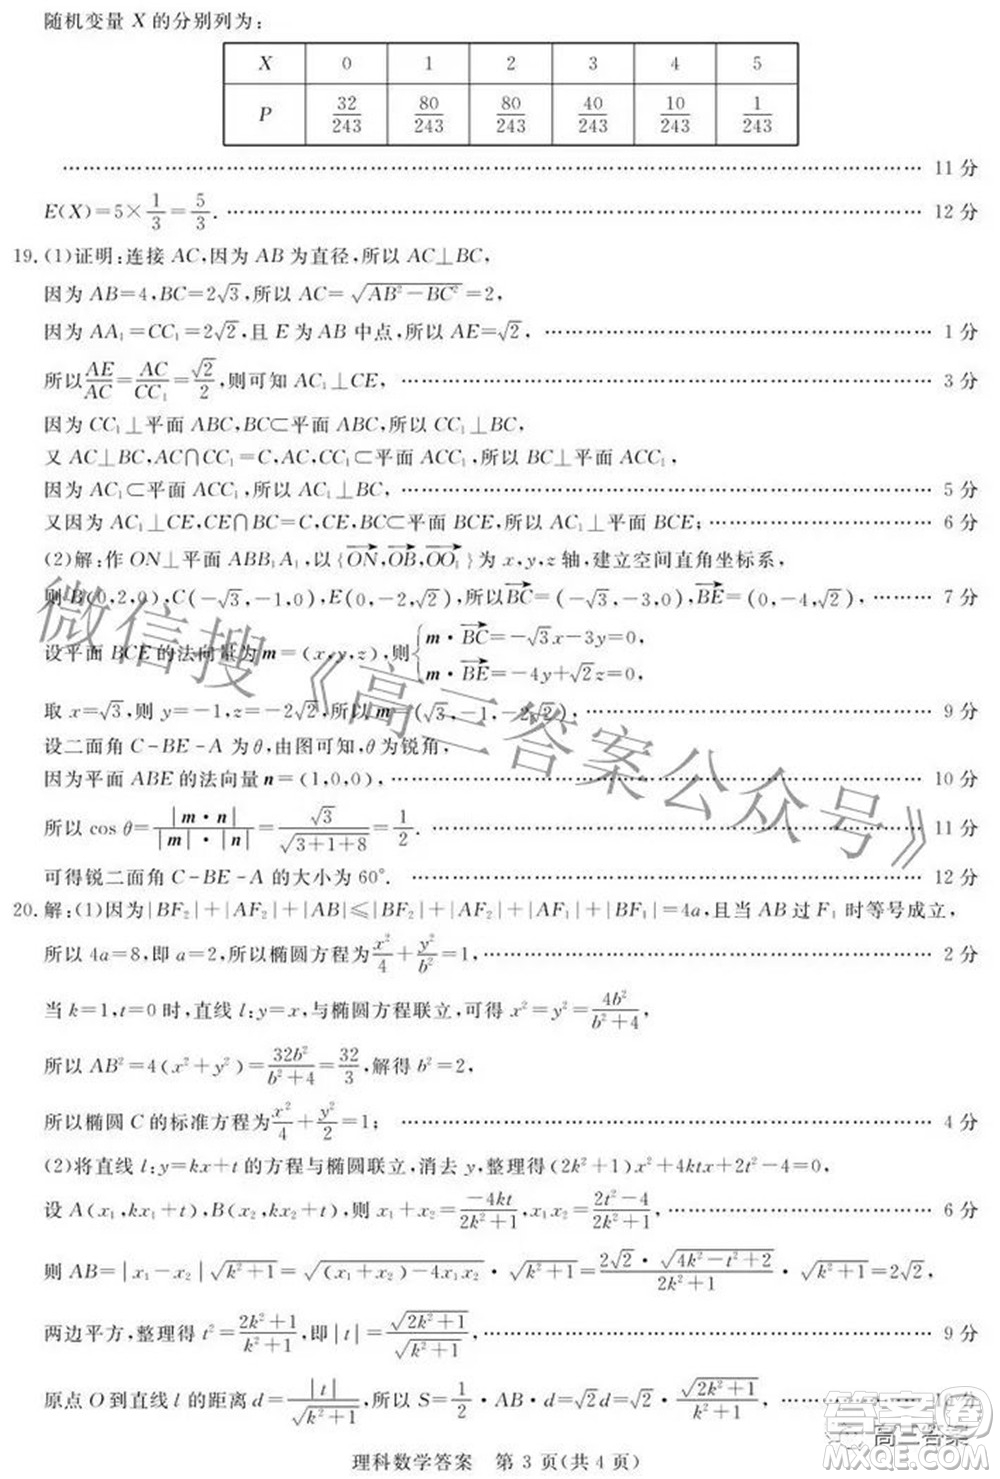 随机变量 X 的分别列为:
X 0 1 2 3 4 5
P 32/243 80/243 80/243 40/243 10/243 1/243
…… 11 分
E(X)=5×1/3=5/3. …… 12 分
19.(1)证明:连接 AC,因为 AB 为直径,所以 AC⊥BC,
因为 AB=4,BC=2√3,所以 AC=√(AB²-BC²)=2,
因为 AA₁=CC₁=2√2,且 E 为 AB 中点,所以 AE=√2, …… 1 分
所以 AE/AC=AC/CC₁=√2/2,则可知 AC₁⊥CE, …… 3 分
因为 CC₁⊥平面 ABC,BC⊂平面 ABC,所以 CC₁⊥BC,
又 AC⊥BC,AC∩CC₁=C,AC,CC₁⊂平面 ACC₁,所以 BC⊥平面 ACC₁,
因为 AC₁⊂平面 ACC₁,所以 AC₁⊥BC, …… 5 分
又因为 AC₁⊥CE,CE∩BC=C,CE,BC⊂平面 BCE,所以 AC₁⊥平面 BCE; …… 6 分
(2)解:作 ON⊥平面 ABB₁A₁,以{ON→,OB→,OO₁→}为 x,y,z 轴,建立空间直角坐标系,
则 B(0,2,0),C(-√3,-1,0),E(0,-2,√2),所以BC→=(-√3,-3,0),BE→=(0,-4,√2), …… 7 分
设平面 BCE 的法向量为 m=(x,y,z),则{m·BC→=-√3x-3y=0,
m·BE→=-4y+√2z=0,
取 x=√3,则 y=-1,z=-2√2,所以 m=(√3,-1,-2√2), …… 9 分
设二面角 C-BE-A 为 θ,由图可知,θ 为锐角,
因为平面 ABE 的法向量 n=(1,0,0), …… 10 分
所以 cos θ=|m·n|/|m|·|n|=√3/√(3+1+8)=1/2. …… 11 分
可得锐二面角 C-BE-A 的大小为 60°. …… 12 分
20.解:(1)因为|BF₂|+|AF₂|+|AB|≤|BF₂|+|AF₂|+|AF₁|+|BF₁|=4a,且当 AB 过 F₁ 时等号成立,
所以 4a=8,即 a=2,所以椭圆方程为x²/4+y²/b²=1, …… 2 分
当 k=1,t=0 时,直线 l:y=x,与椭圆方程联立,可得 x²=y²=4b²/(b²+4),
所以 AB²=4(x²+y²)=32b²/(b²+4)=32/3,解得 b²=2,
所以椭圆 C 的标准方程为x²/4+y²/2=1; …… 4 分
(2)将直线 l:y=kx+t 的方程与椭圆联立,消去 y,整理得(2k²+1)x²+4ktx+2t²-4=0,
设 A(x₁,kx₁+t),B(x₂,kx₂+t),则 x₁+x₂=-4kt/(2k²+1),x₁x₂=(2t²-4)/(2k²+1), …… 6 分
则 AB=|x₁-x₂|√(k²+1)=√((x₁+x₂)-4x₁x₂)·√(k²+1)=2√2·√(4k²-t²+2)/(2k²+1)·√(k²+1)=2√2,
两边平方,整理得 t²=(2k²+1)/(k²+1),即|t|=√(2k²+1)/√(k²+1), …… 9 分
原点 O 到直线 l 的距离 d=|t|/√(k²+1),所以 S=1/2·AB·d=√2d=√2·√(2k²+1)/(k²+1), ……
理科数学答案 第 3 页(共 4 页)
微信搜《高三答案公众号》
高三答案